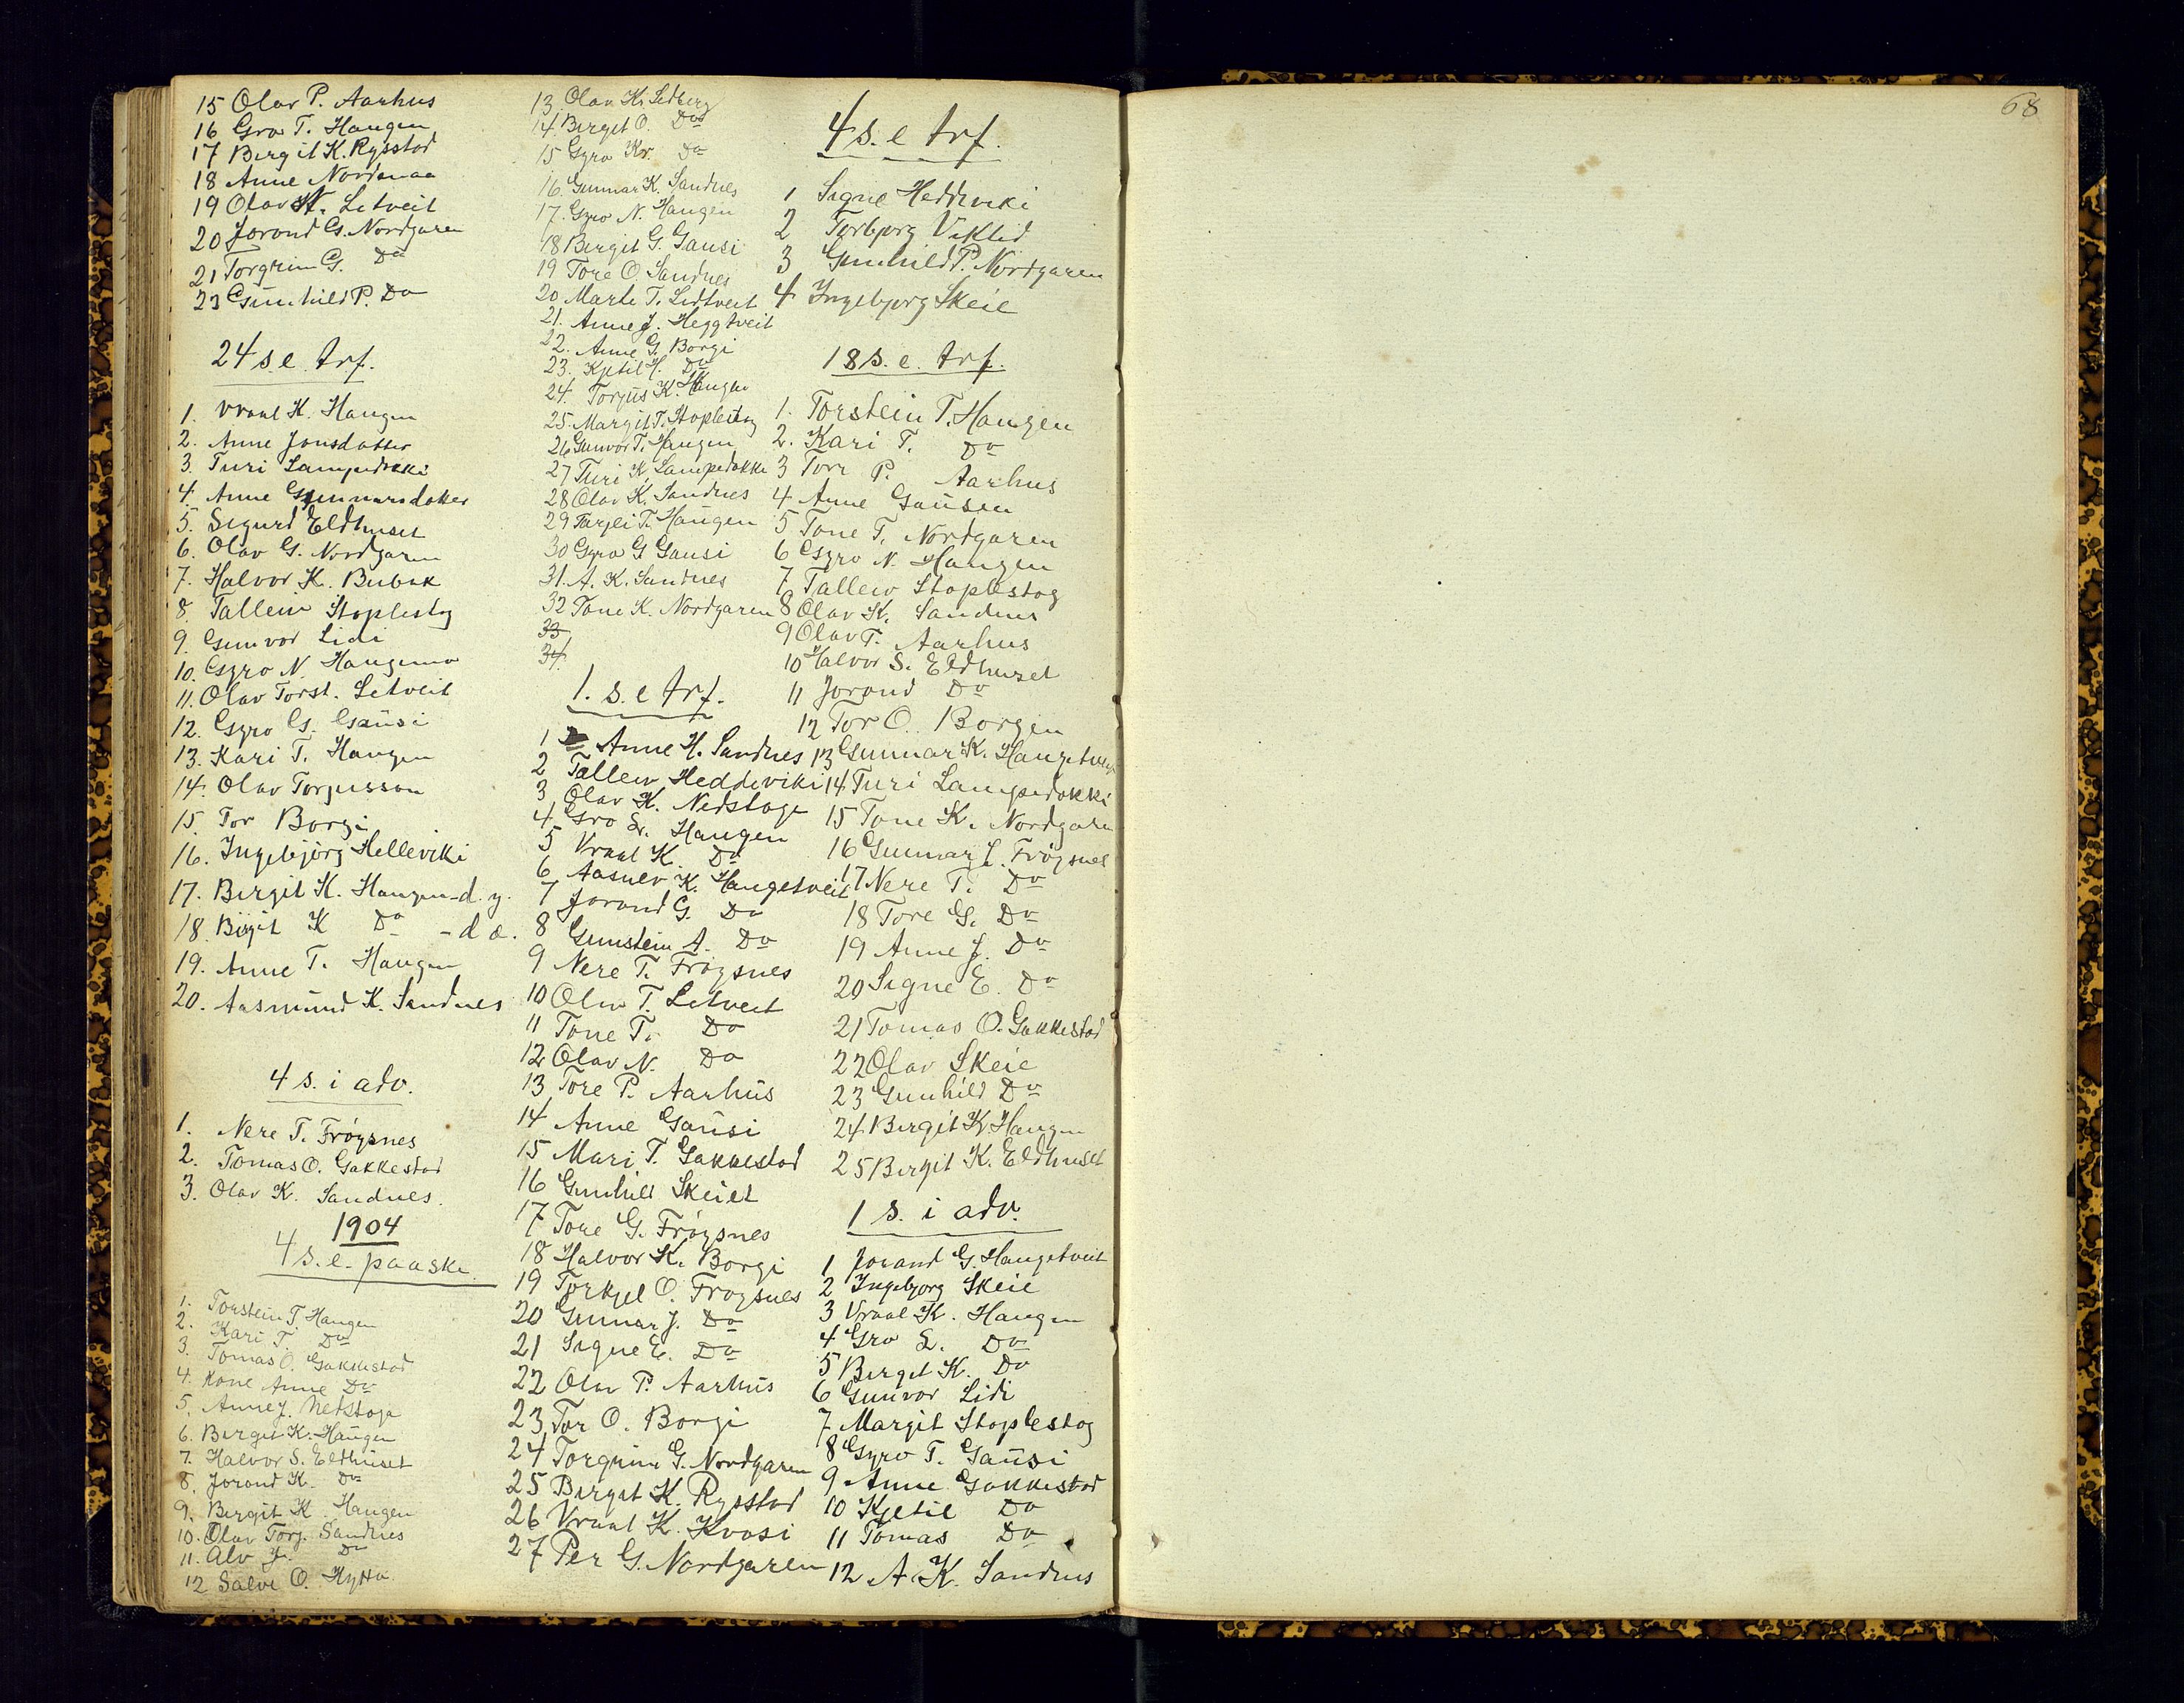 15 Olav P. Aarhus
16 Gro T. Haugen
17 Bergit K. Rysstad
18 Anne Nordenaa
19 Olav N. Litveit
20 Jorond G. Nordgaren
21 Torgrim G. Do
23 Gunhild P. Do
24 s. e. trf.
1. Vraal K. Haugen
2. Anne Jonsdatter
3. Turi Lampedokki
4. Anne Gunnarsdotter
5. Sigurd Eldhuset
6. Olav G. Nordgaren
7. Halvor K. Bubak
8. Talleiv Stoplestog
9. Gunvor Lidi
10. Gyro N. Haugen
11. Olav Torst. Litveit
12. Gyro G. Gausi
13. Kari T. Haugen
14. Olav Torjusson
15 Tor Borgi
16. Ingebjørg Helleviki
17. Birgit K. Haugen - d. y.
18. Birgit K Do - d æ.
19. Anne T. Haugen
20. Aasmund K. Sandnes
4 s. i adv.
1. Nere T. Frøysnes
2. Tomas O. Gakkestad
3. Olav K. Sandnes.
1904
4 s. e. paaske
1. Torstein T Haugen
2. Kari T. Do
3. Tomas O. Gakkestad
4. Kone Anne Do
5. Anne J. Netstoga
6. Bergit K. Haugen
7. Halvor S. Eldhuset
8. Jorand K. Do
9. Bergit K Haugen
10. Olav Torj. Sandnes
11. Alv J. Do
12 Salve O.
13. Olav K. Lidberg
14. Birgit O. Do
15 Gyro Kr. Do
16. Gunnar K. Sandnes
17. Gyro N. Haugen
18 Birgit G. Gausi
19 Tore O. Sandnes
20. Marte T. Lidtveit
21. Anne J. Heggtveit
22. Anne G. Borgi
23. Kjetil H. Do
24. Torjus K. Haugen
25. Margit T. Stoplestog
26 Gunvor T. Haugen
27 Turi K. Lampedokke
28 Olav K. Sandnes
29 Tarjei T. Haugen
30 Gyro G Gausi
31. A. K. Sandnes
32 Tone K. Nordgaren
33
34
1. s. e trf.
1 Anne H. Sandnes
2 Talleiv Heddeviki
3 Olav K. Nedstoge
4 Gro S. Haugen
5 Vraal K. Do
6 Aasulv K. Haugetveit
7 Jorand G. Do
8 Gunstein A. Do
9 Nere T. Frøysnes
10 Olav T. Litveit
11 Tone T. Do
12 Olav N. Do
13 Tore P. Aarhus
14 Anne Gausi
15 Mari T. Gakkestad
16 Gunhild Skeiet
17 Tore G. Frøysnes
18 Halvor K. Borgi
19 Torkjel O. Frøysnes
20 Gunnar J. Do
21 Signe E. Do
22 Olav P. Aarhus
23 Tor O. Borgi
24 Torgrim G. Nordgaren
25 Birgit K. Rysstad
26 Vraal K. Kvasi
27 Per G. Nordgaren
4 s. e trf.
1 Signe Heddeviki
2 Torbjørg Viklid
3 Gunhild P. Nordgaren
4 Ingebjørg Skeie
18 s. e. trf.
1. Torstein T. Haugen
2. Kari T. Do
3 Tore P. Aarhus
4 Anne Gausen
5 Tone T. Nordgaren
6 Gyro N. Haugen
7 Talleiv Stoplestog
8 Olav K. Sandnes
9 Olav P. Aarhus
10 Halvor S. Eldhuset
11 Jorand Do
12 Tor O. Borgen
13 Gunnar K. Haugetveit
14 Turi Lampedokki
15 Tone K. Nordgaren
16 Gunnar J. Frøysnes
17 Nere T. Do
18 Tore G. Do
19 Anne J. Do
20 Signe E. Do
21 Tomas O. Gakkestad
22 Olav Skeie
23 Gunhild Do
24 Birgit K. Haugen
25 Birgit K. Eldhuset
1 s. i adv.
1 Jorand G. Haugetveit
2 Ingebjorg Skeie
3 Vraal K. Haugen
4 Gro S. Do
5 Birgit K. Do
6 Gunvor Lidi
7 Margit Stoplestog
8 Gyro T. Gausi
9 Anne Gakkestad
10 Kjetil Do
11 Tomas Do
12 A. K. Sandnes
68